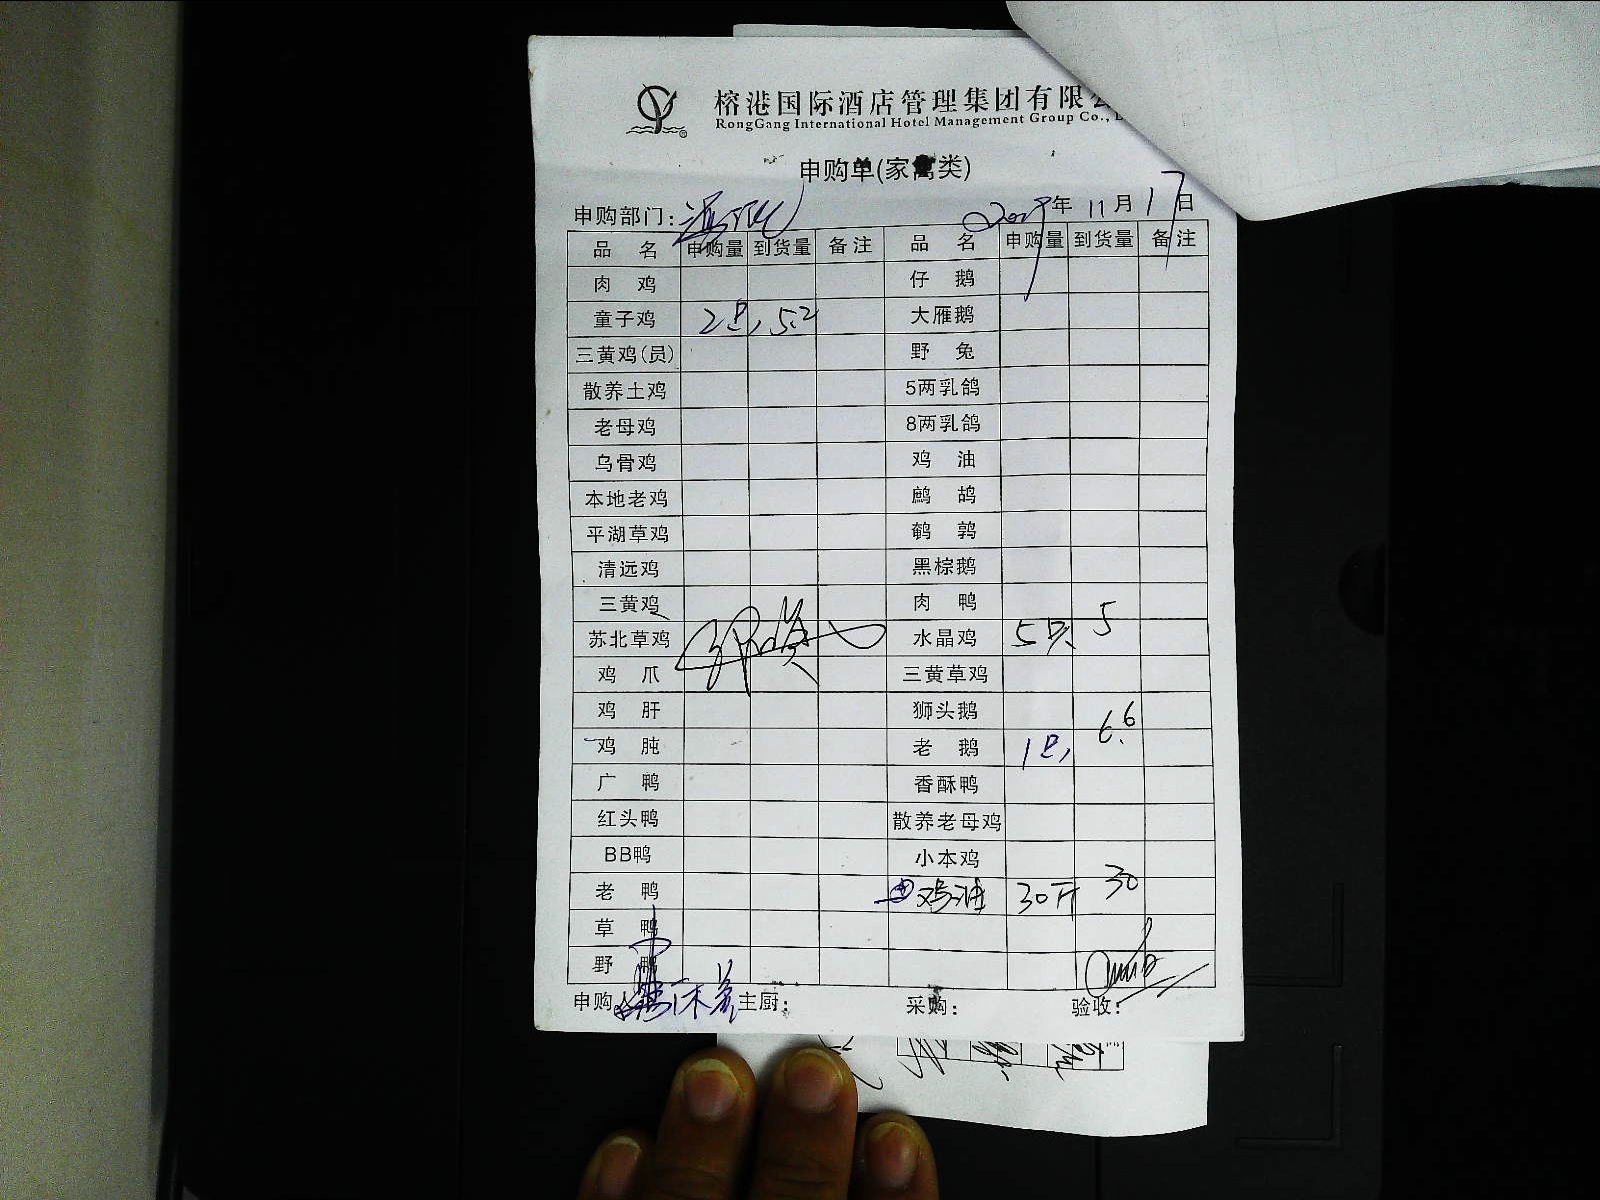 榕港国际酒店管理集团有限公
RongGang International Hotel Management Group Co.,
申购单(家禽类)
申购部门: 年 11月17日
品名 申购量 到货量 备注 品名 申购量 到货量 备注
肉鸡 仔鹅
童子鸡 2只 5.2 大雁鹅
三黄鸡(员) 野兔
散养土鸡 5两乳鸽
老母鸡 8两乳鸽
乌骨鸡 鸡油
本地老鸡 鹧鸪
平湖草鸡 鹌鹑
清远鸡 黑棕鹅
三黄鸡 肉鸭
苏北草鸡 水晶鸡 5只 5
鸡爪 三黄草鸡
鸡肝 狮头鹅
鸡肫 老鹅 1只 6.6
广鸭 香酥鸭
红头鸭 散养老母鸡
BB鸭 小本鸡
老鸭 鸡 30斤 30
草鸭
野鸭
申购人: 主厨: 采购: 验收: